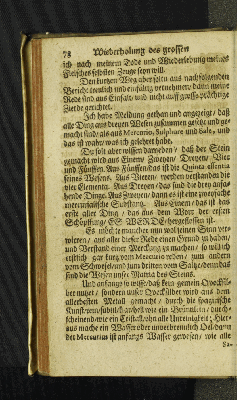 78 Wiederholung des grossen
ich nach meinem Tode und Wiederlebung meines
Fleisches selbsten Zeuge seyn will.
Den kurtzen Weg aber solt du aus nachfolgenden
Bericht kennlich und einfältig vernehmen / dann meine
Rede sind aus Einfalt und nicht auff grosse prächtige
Zierde gerichtet.
Ich habe Meldung gethan und angezeigt / daß
alle Ding aus dreyen Wesen zusammen gesetzt und ge-
macht sind / als aus Mercurio, Sulphure und Sale, und
das ist wahr / was ich gelehret habe.
Du solt aber wissen darneben / daß der Stein
gemacht wird aus Einem / Zweyen / Dreyen / Vier
und Fünffen. Aus Fünffen / das ist die Quinta essentia
seines Wesens. Aus Vieren / werden verstanden die
vier Elementa. Aus Dreyen / das sind die drey anfa-
hende Dinge. Aus Zweyen / dann es ist eine zweyfache
mercurialische Substantz. Aus Einem / das ist das
erste aller Ding / das aus dem Wort der ersten
Schöpffung / ES WERDE hergeflossen ist.
Es möchte mancher nun wol seinen Sinn ver-
wirren / aus aller dieser Rede einen Grund zu haben /
und Verstand einer Werckung zu machen / so will ich
erstlich gar kurtz vom Mercurio reden / zum andern
vom Schwefel / und zum dritten vom Saltz / denn das
sind die Wesen unser Materia des Steins.
Und anfangs so wisse / daß kein gemein Quecksil-
ber nutzet / sondern unser Quecksilber wird aus dem
allerbesten Metall gemacht / durch die spagyrische
Kunst / rein / subtil / klar
scheinend / wie ein Cristall / ohn alle Unreinigkeit; Hier-
aus mache ein Wasser oder unverbrennlich Oel / dann
der Mercurius ist anfangs Wasser gewesen / wie alle